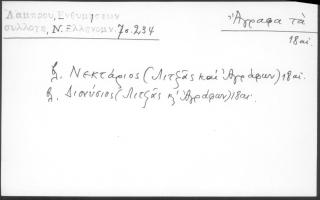 Λάμπρου, Ἐνθυμήσεων
συλλογὴ, Ν. Ἑλληνομν. 7ος 234
Ἄγραφα τὰ
18 αἰ.
βλ. Νεκτάριος (Λιτζᾶς καὶ Ἀγράφων) 18 αἰ.
βλ. Διονύσιος (Λιτζᾶς κ' Ἀγράφων) 18 αἰ.